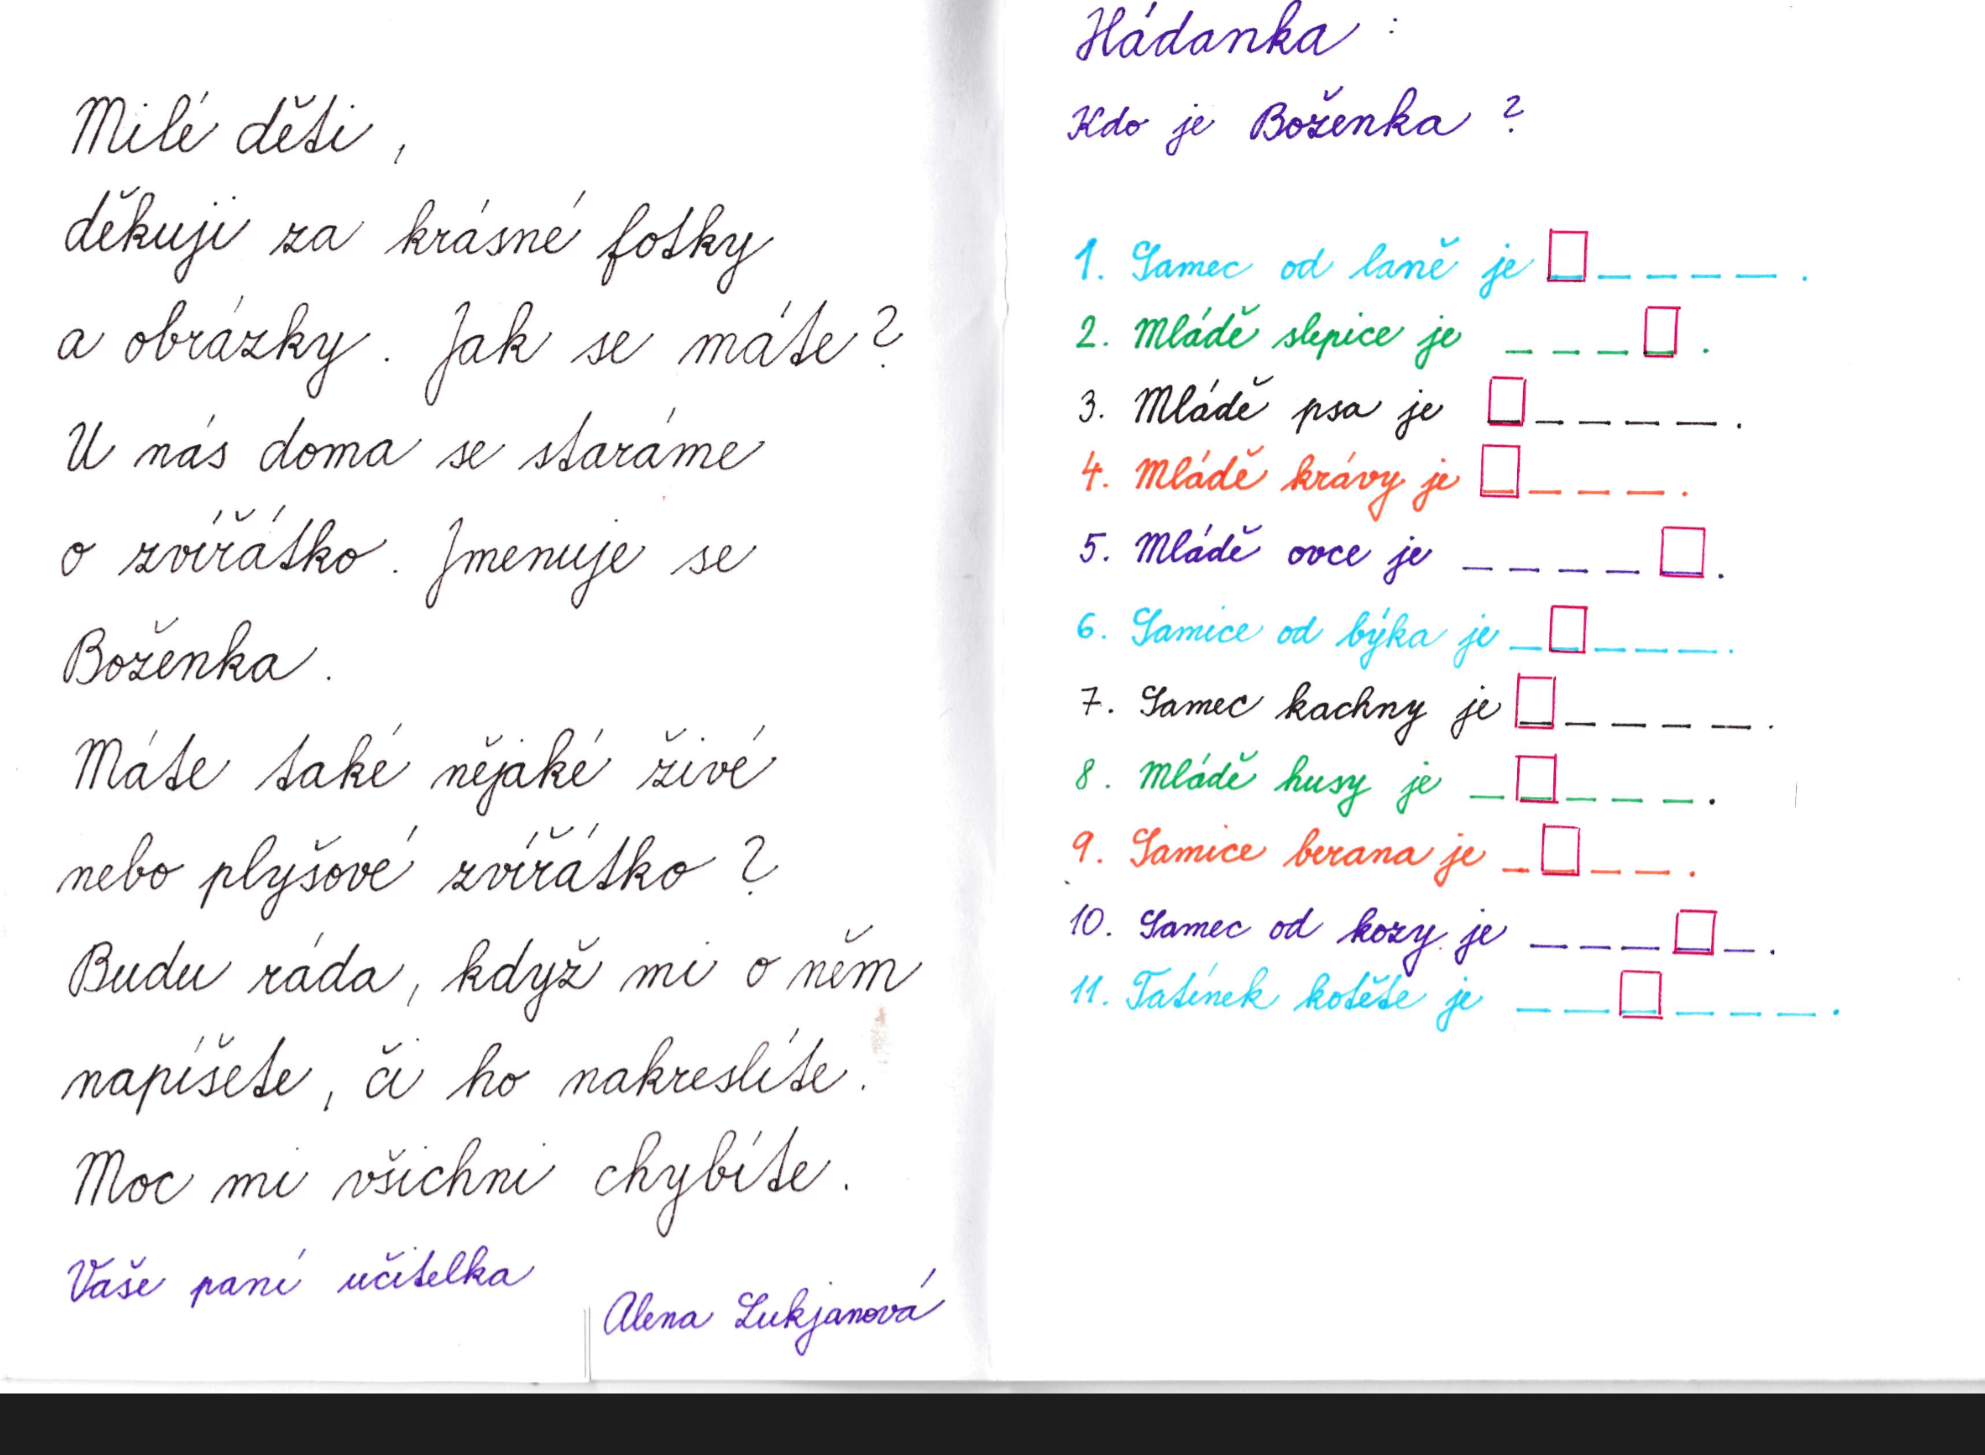 Milé děti,
děkuji za krásné fotky
a obrázky. Jak se máte?
U nás doma se staráme
o zvířátko. Jmenuje se
Boženka.
Máte také nějaké živé
nebo plyšové zvířátko?
Budu ráda, když mi o něm
napíšete, či ho nakreslíte.
Moc mi všichni chybíte.
Vaše paní učitelka
Alena Lukjanová
Hádanka:
Kdo je Boženka?
1. Samec od laně je _ _ _ _ _.
2. Mládě slepice je _ _ _ _.
3. Mládě psa je _ _ _ _ _.
4. Mládě krávy je _ _ _ _.
5. Mládě ovce je _ _ _ _ _.
6. Samice od býka je _ _ _ _ _.
7. Samec kachny je _ _ _ _ _.
8. Mládě husy je _ _ _ _ _.
9. Samice berana je _ _ _ _.
10. Samec od kozy je _ _ _ _ _.
11. Tatínek kotěte je _ _ _ _ _ _ _.